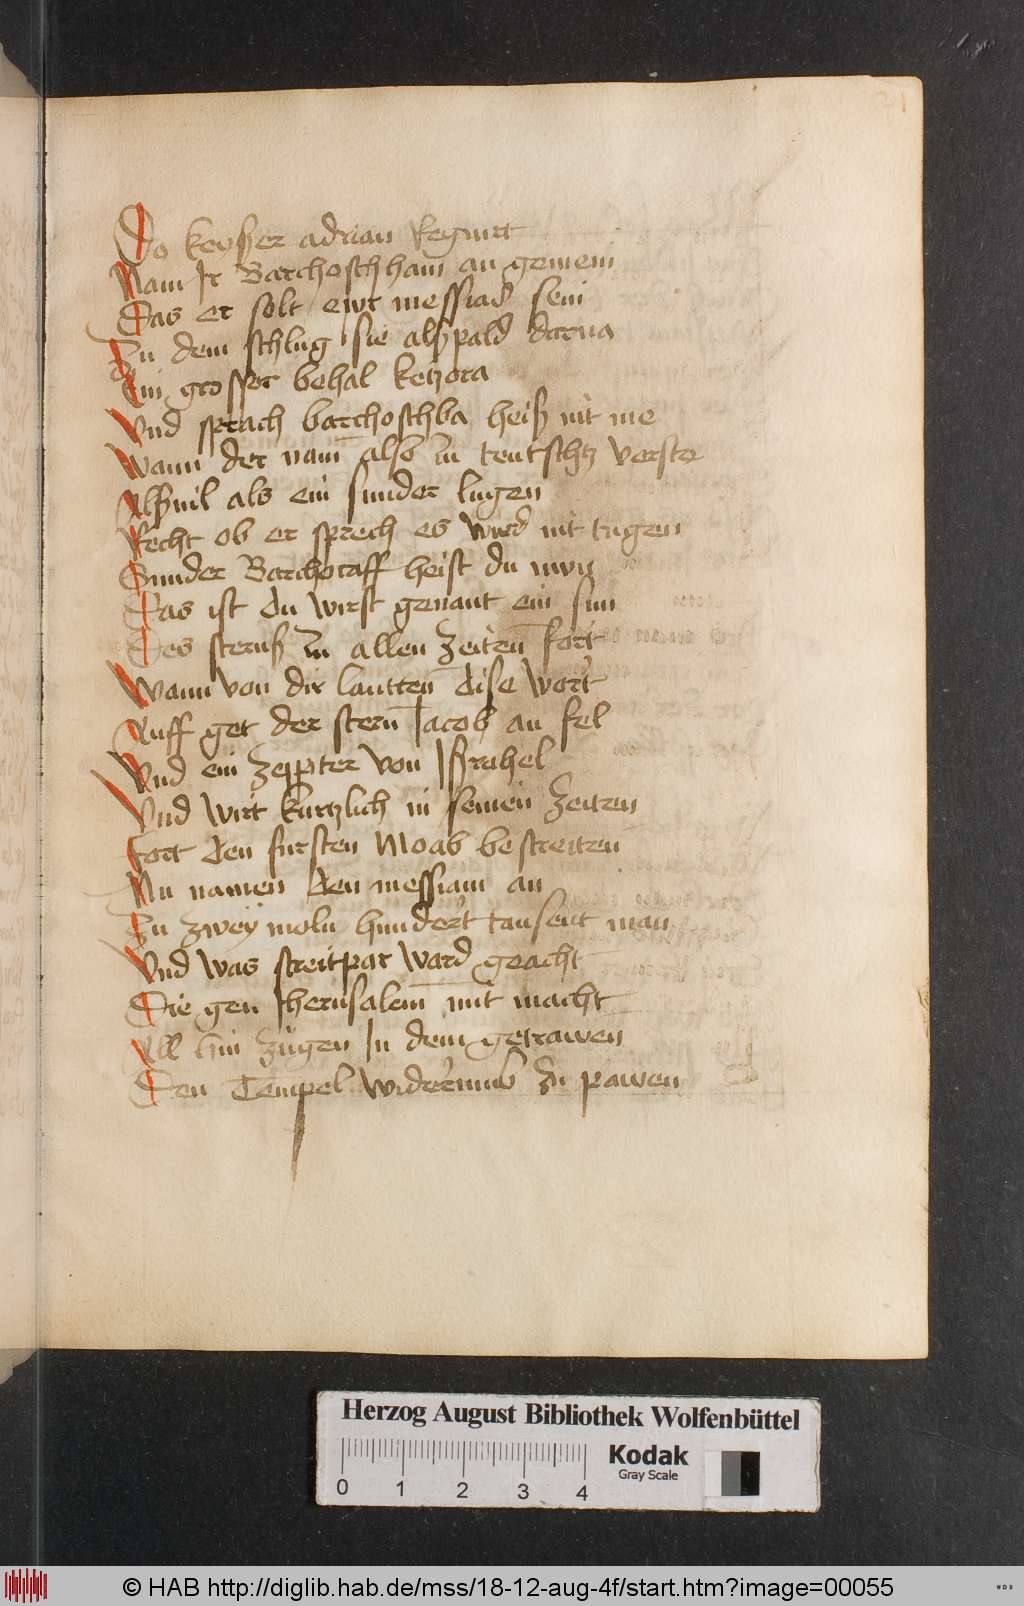 Do keyser adrian Regnirt
Nam Ir Barchoschham an gemein
Das er solt ewr messias sein
Zu dem schlug sie alspald darna
Ein grosser behal ketzora
Vnd sprach barchoschba heiß nit me
Wann der nam also zu teutsch verster
Alsvil als ein sunder lugen
Recht ob er sprech es wird nit tugen
Sunder Barchoraff heist du nwn
Das ist du wirst genant ein sun
Des sternß zu allen zeiten fort
Wann von dir lautten dise wort
Auff get der stern Jacob an fel
Vnd ein zeppter von Jsrahel
Vnd wirt kurtzlich in seinen zeiten
fort den fursten Moab bestreiten
Nu namen den messiam an
Zu zwey moln hundert tausent man
Vnd was streitpar ward geacht
Die gen Jherusalem mit macht
All hin zugen In dem getrawen
Den Tempel widerumb zu pawen
Herzog August Bibliothek Wolfenbüttel
Kodak
Gray Scale
0 1 2 3 4
© HAB http://diglib.hab.de/mss/18-12-aug-4f/start.htm?image=00055